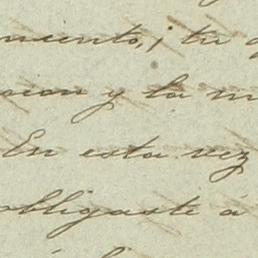 miento, i tu
sion y la m
En esta vez
obligaste á